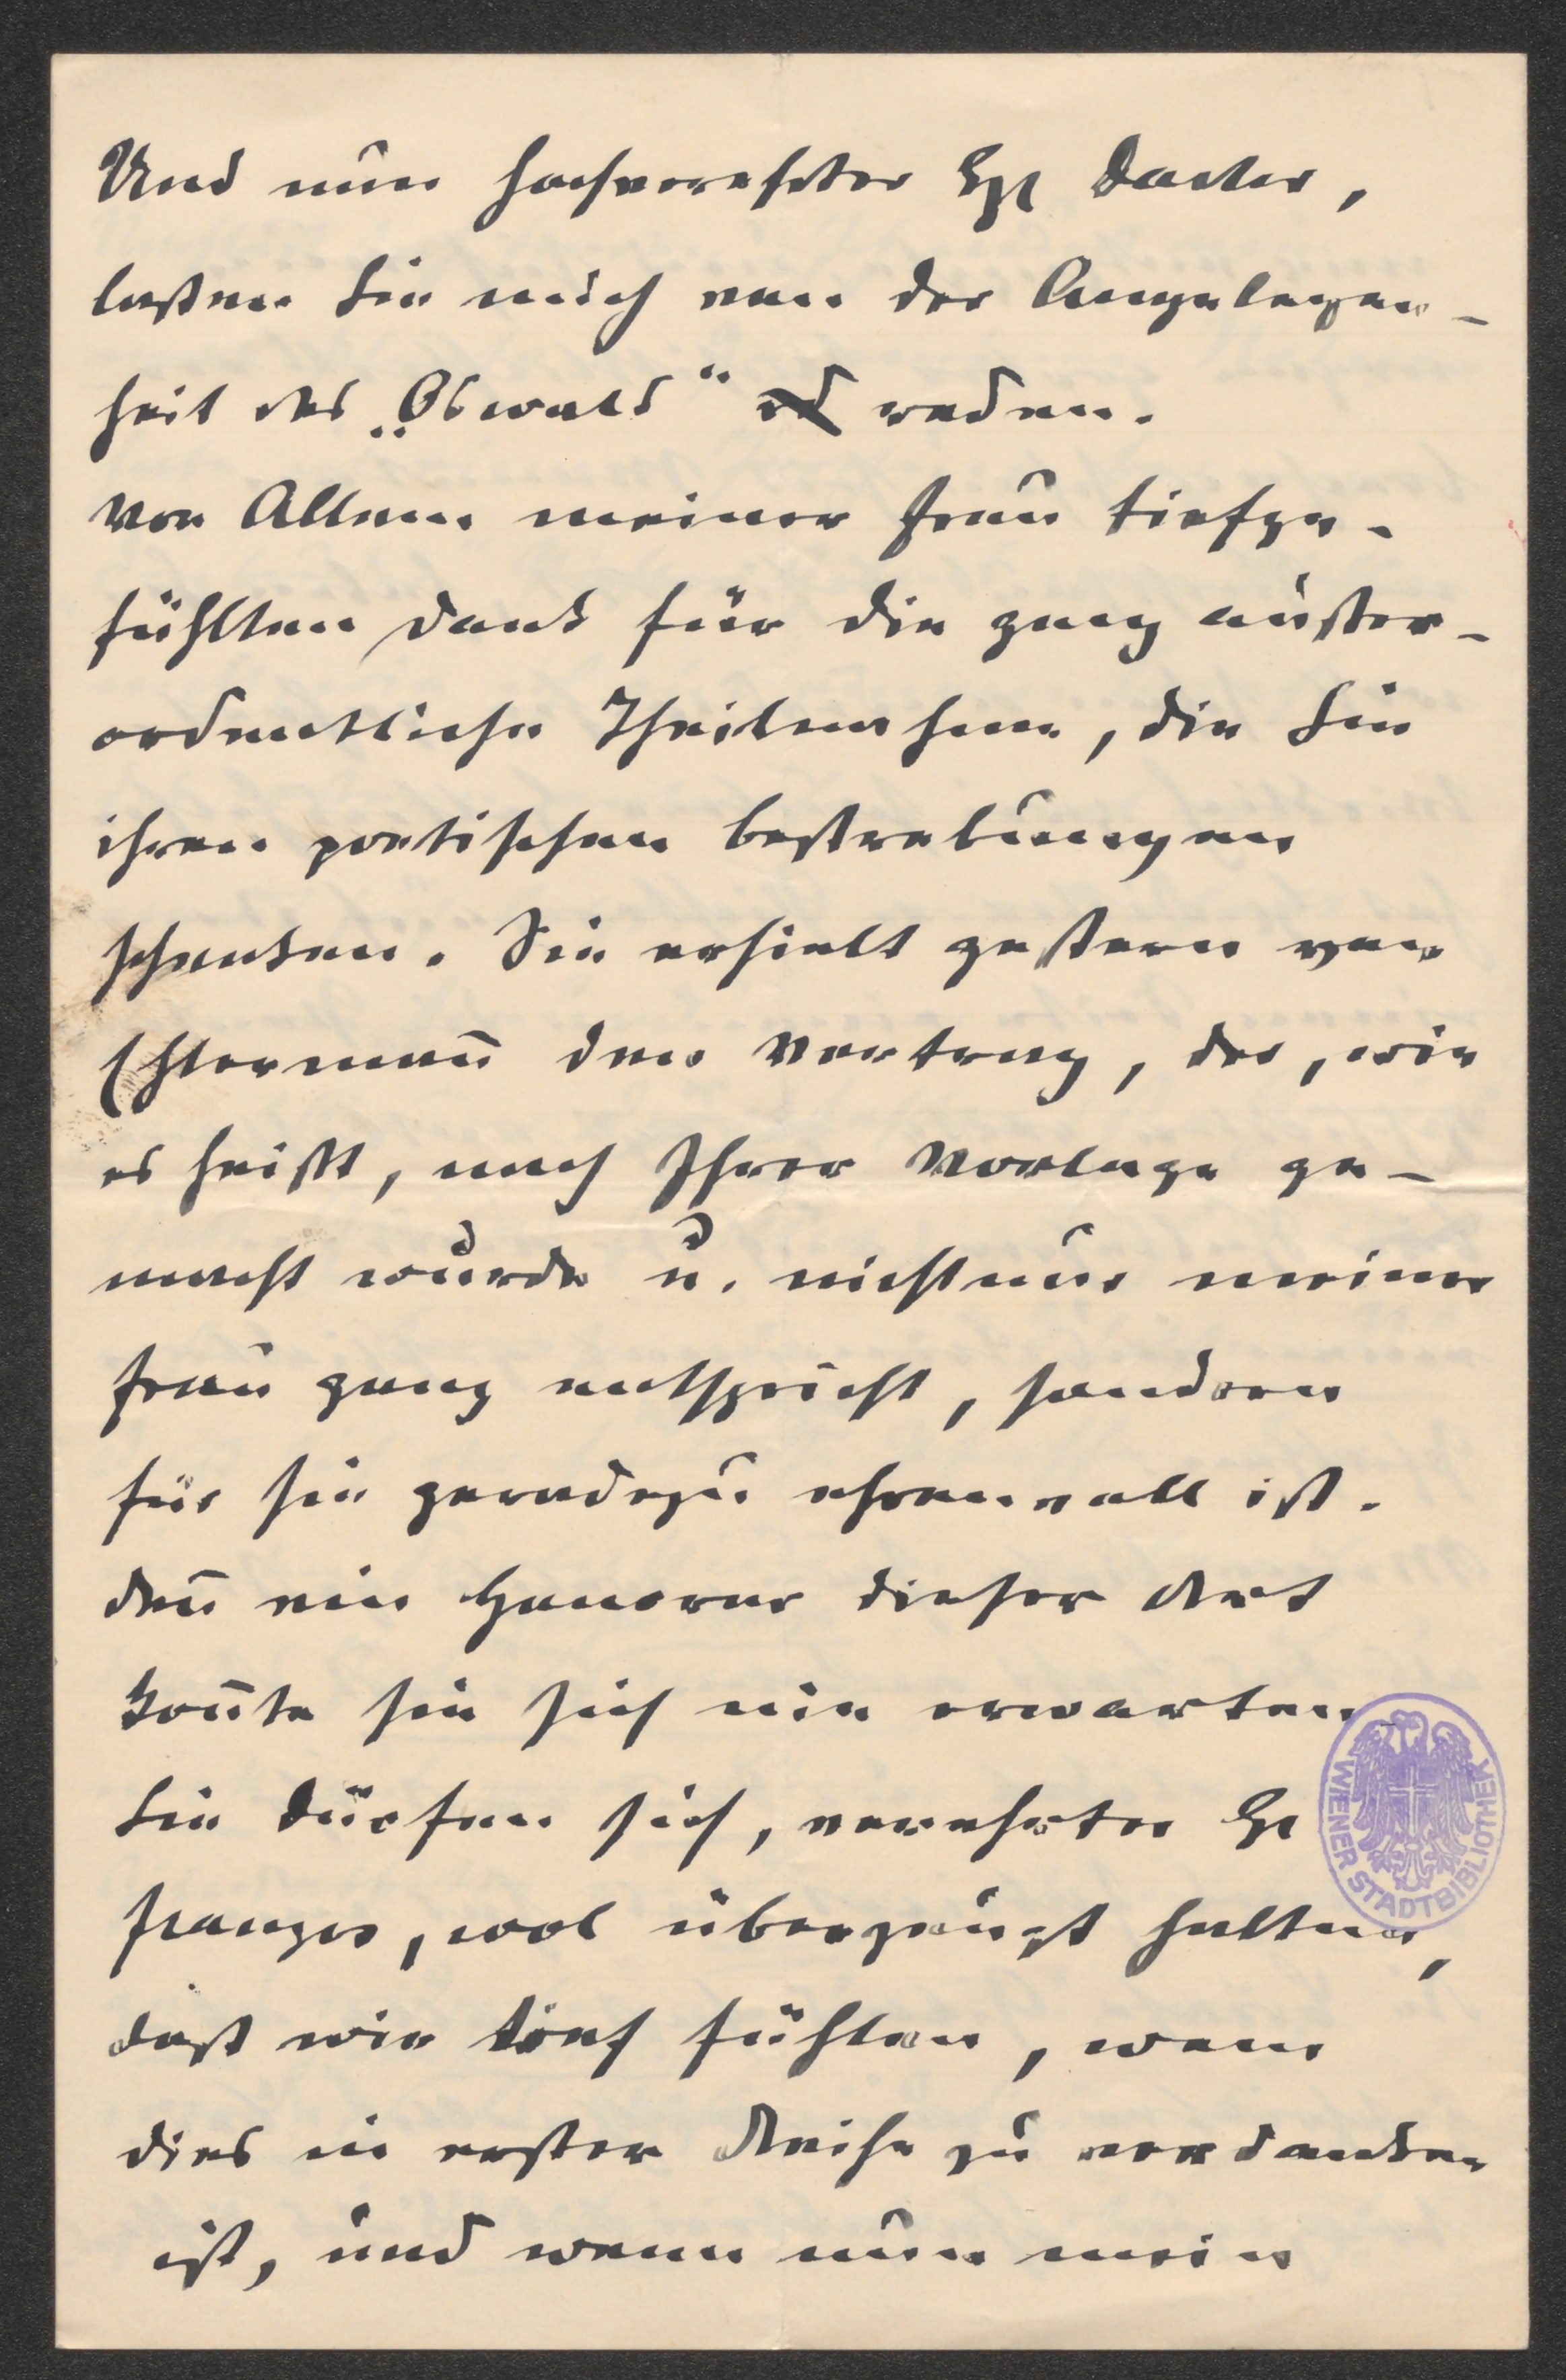 Und nun hochverehrter Hr Doctor,
laßen Sie mich von der Angelegen-
heit des „Oswald" reden.
Vor Allem meiner Frau tiefge-
fühlten Dank für die ganz außer-
ordentliche Theilnahme, die Sie
ihren poetischen Bestrebungen
schenken. Sie erhielt gestern von
Eßlermañ den Vertrag, der, wie
es heißt, nach Ihrer Vorlage ge-
macht wurde u. nicht nur meiner
Frau ganz entspricht, sondern
für sie geradezu ehrenvoll ist.
Deñ ein Honorar dieser Art
koñte sie sich nie erwarten.
Sie dürfen sich, verehrter Hr
Franzos, wol überzeugt halten,
daß wir tief fühlen, wem
dies in erster Reihe zu verdanken
ist, und wenn nun mein
WIENER STADTBIBLIOTHEK